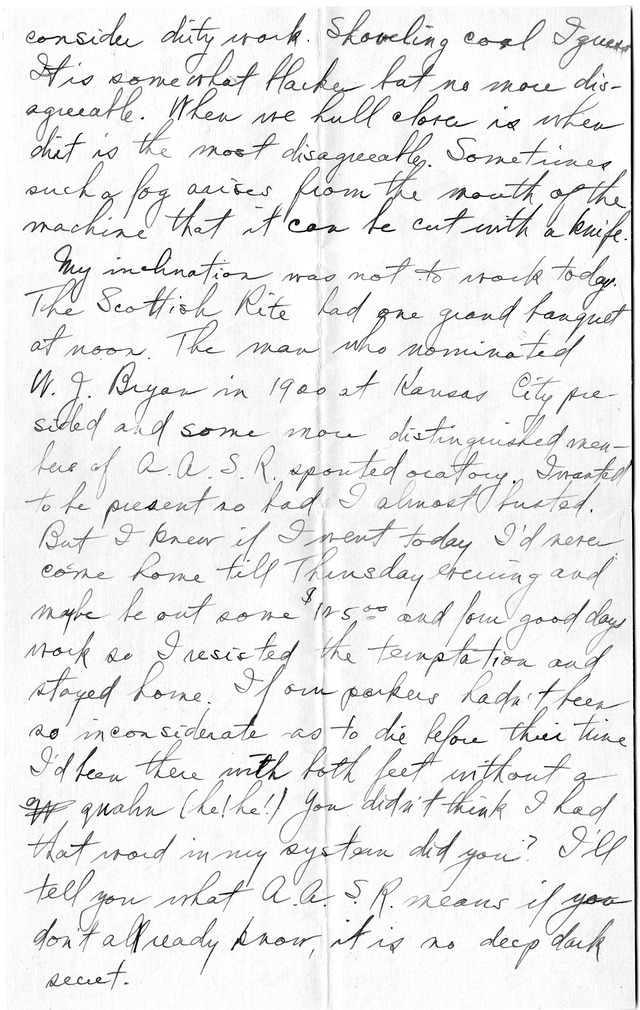 consider dirty work. Shoveling coal I guess
It is somewhat blacker but no more dis-
agreeable. When we hull clover is when
dirt is the most disagreeable. Sometimes
such a fog arises from the mouth of the
machine that it can be cut with a knife.
My inclination was not to work today.
The Scottish Rite had one grand banquet
at noon. The man who nominated
W. J. Bryan in 1900 at Kansas City pre-
sided and some more distinguished mem-
bers of A.A.S.R. spouted oratory. I wanted
to be present so bad I almost busted.
But I knew if I went today I'd never
come home till Thursday evening and
maybe be out some $125.00 and four good days
work so I resisted the temptation and
stayed home. If our porkers hadn't been
so inconsiderate as to die before their time
I'd been there with both feet without a
qualm (he! he!) You didn't think I had
that word in my system did you? I'll
tell you what A.A.S.R. means if you
don't allready know, it is no deep dark
secret.